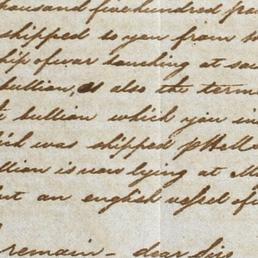 thousand five hundred po
shipped to you from
ship of war touching at sa
bullion, as also the term
bullion which you in
was shipped p Hells
llion is now lying at M
but an english vessel of
remain - dear Sirs